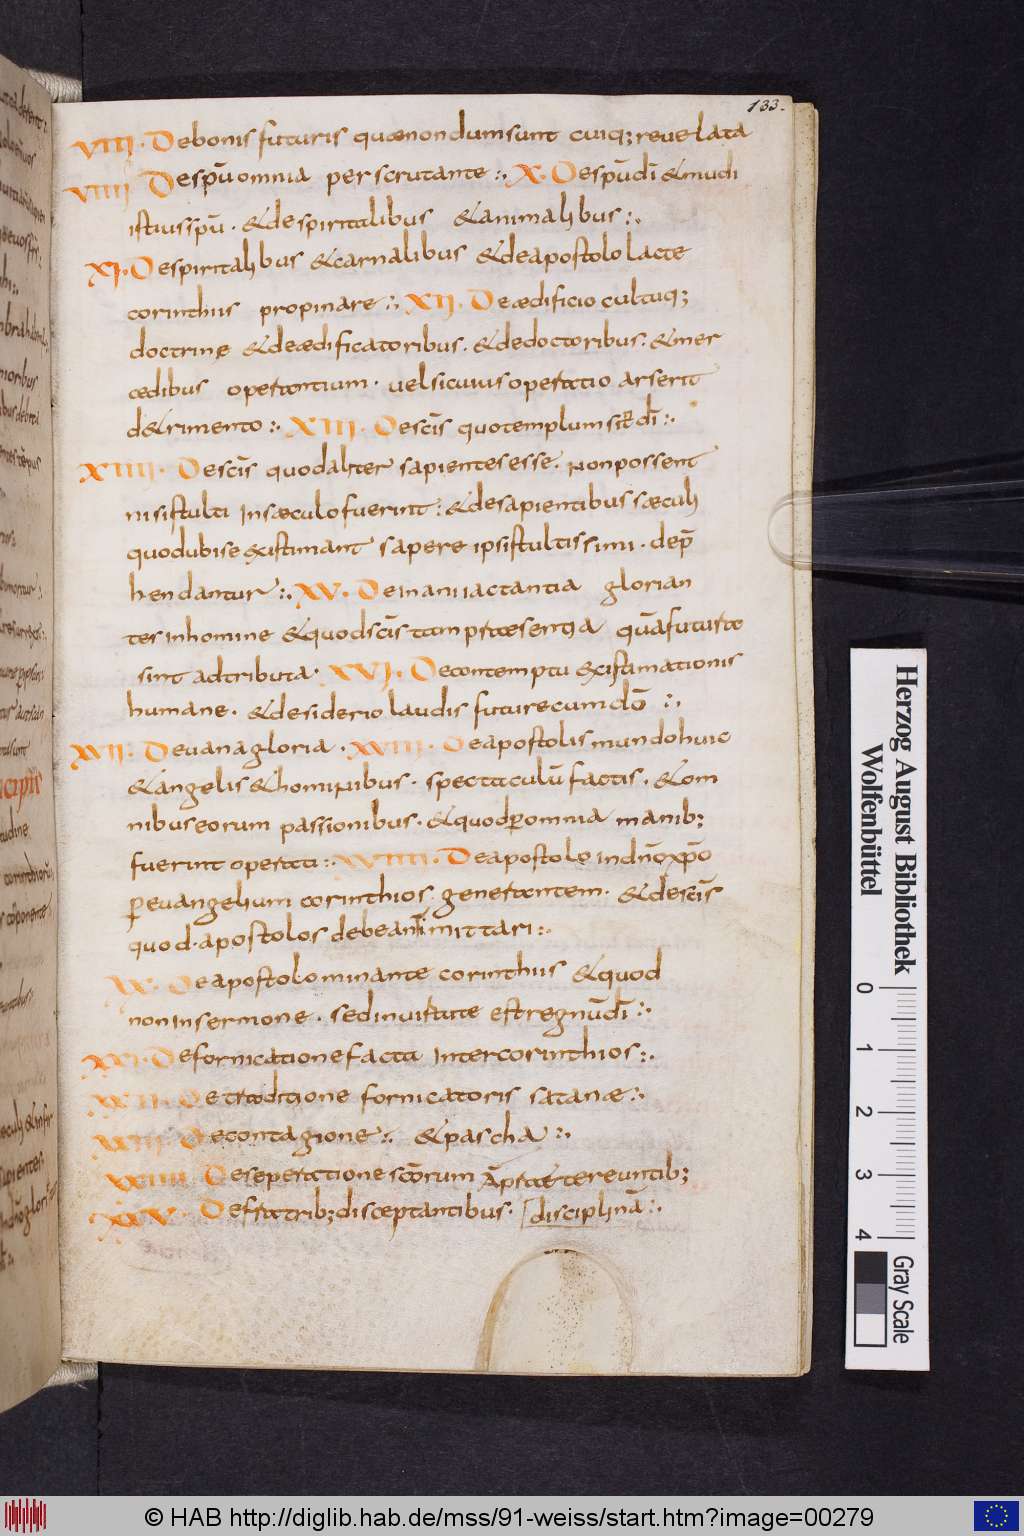 133.
VIII. De bonis futuris quæ nondum sunt cuiq; reuelata
VIIII De sp̄u omnia perscrutante :. X. De sp̄u dī & mudi
istius sp̄u . & de spiritalibus & animalibus :.
XI. De spiritalibus & carnalibus & de apostolo lacte
corinthiis propinare :. XII. De ædificio cultuq;
doctrine & de ædificatoribus . & de doctoribus . & mer
cædibus operantium . uel si cuius operatio arserit
d&rimento :. XIII . De sc̄is quo templum sint dī :.
XIIII . De sc̄is quod aliter sapientes esse . non possent
nisi stulti in sæculo fuerint : & de sapientibus sæculi
quod ubi se existimant sapere ipsi stultissimi . dep̄
hendantur :. XV. De inani iactantia glorian
tes in homine & quod sc̄is tam præsentia quā futura
sint adtributa . XVI. De contemptu existimationis
humane . & desiderio laudis future cum dō :.
XVII: De uana gloria . XVIII . De apostolis mundo huic
& angelis & hominibus . spectaculū factis . & om
nibus eorum passionibus . & quod p̱ omnia manib;
fuerint operati :. XVIIII. De apostolo in dn̄o xp̄o
p̱ euangelium corinthios generantem . & de sc̄is
quod . apostolos debeant imittari :.
XX. De apostolo minante corinthiis & quod
non in sermone . sed in uirtute est regnū dī :.
XXI. De fornicatione facta inter corinthios :.
XXII . De traditione fornicatoris satanæ :.
XXIII De contagione :. & pascha :.
XXIIII De seperatione sc̄orum a p̄tereuntib;
XXV . De fratrib; disceptantibus . [disciplinā :.
Herzog August Bibliothek
Wolfenbüttel
0 1 2 3 4
Gray Scale
© HAB http://diglib.hab.de/mss/91-weiss/start.htm?image=00279